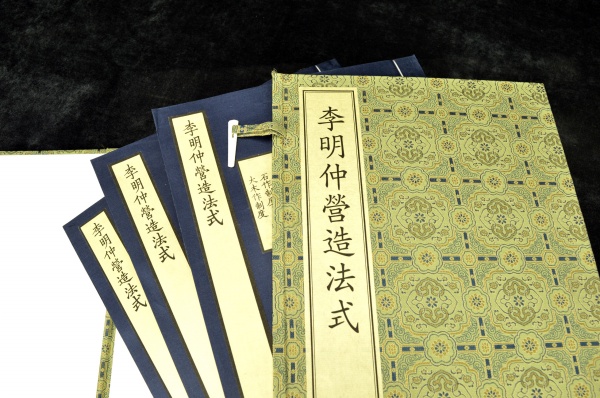 李明仲營造法式
李明仲營造法式
李明仲營造法式
石作制度
大木作制度
李明仲營造法式